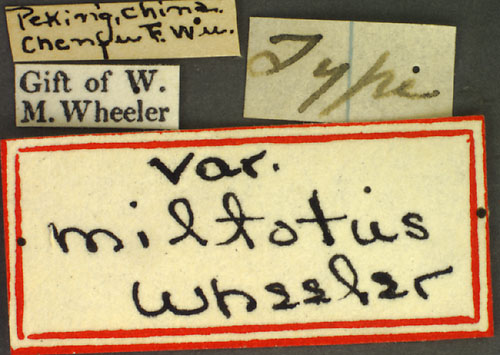 Peking, China.
Chenfu F. Wu.
Type
Gift of W.
M. Wheeler
var.
miltotus
Wheeler